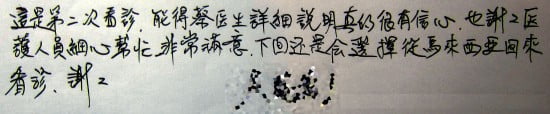 這是第二次看診，能得蔡医生詳細說明真的很有信心，也謝謝医
護人員細心幫忙，非常滿意，下回还是会選擇從馬來西亞回來
看診、謝謝